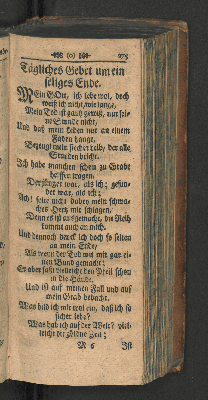 (o) 275
Tägliches Gebet um ein
seliges Ende.
MEin GOtt, ich lebe wol, doch
weiß ich nicht, wie lange,
Mein Tod ist gantz gewiß, nur sein
Stunde nicht,
Und daß mein Leben nur an einem
Faden hange,
Bezeugt mein siecher Leib, der alle
Stunden bricht.
Ich habe manchen schon zu Grabe
helffen tragen,
Der jünger war, als ich; gesun-
der war, als ich;
Ach! solte nicht dabey mein schwa-
ches Hertz mir schlagen,
Denn es ist ausgemacht, die Reih
kommt auch an mich.
Und dennoch denck ich doch so selten
an mein Ende,
Als wenn der Tod mit mir gar ei-
nen Bund gemacht;
Er aber faßt vielleicht den Pfeil schon
in die Hände,
Und ist auf meinen Fall und auf
mein Grab bedacht.
Was bild ich mir wol ein, daß ich so
sicher leb?
Was hab ich auf der Welt? viel-
leicht die göldne Zeit;
M 6 Ist